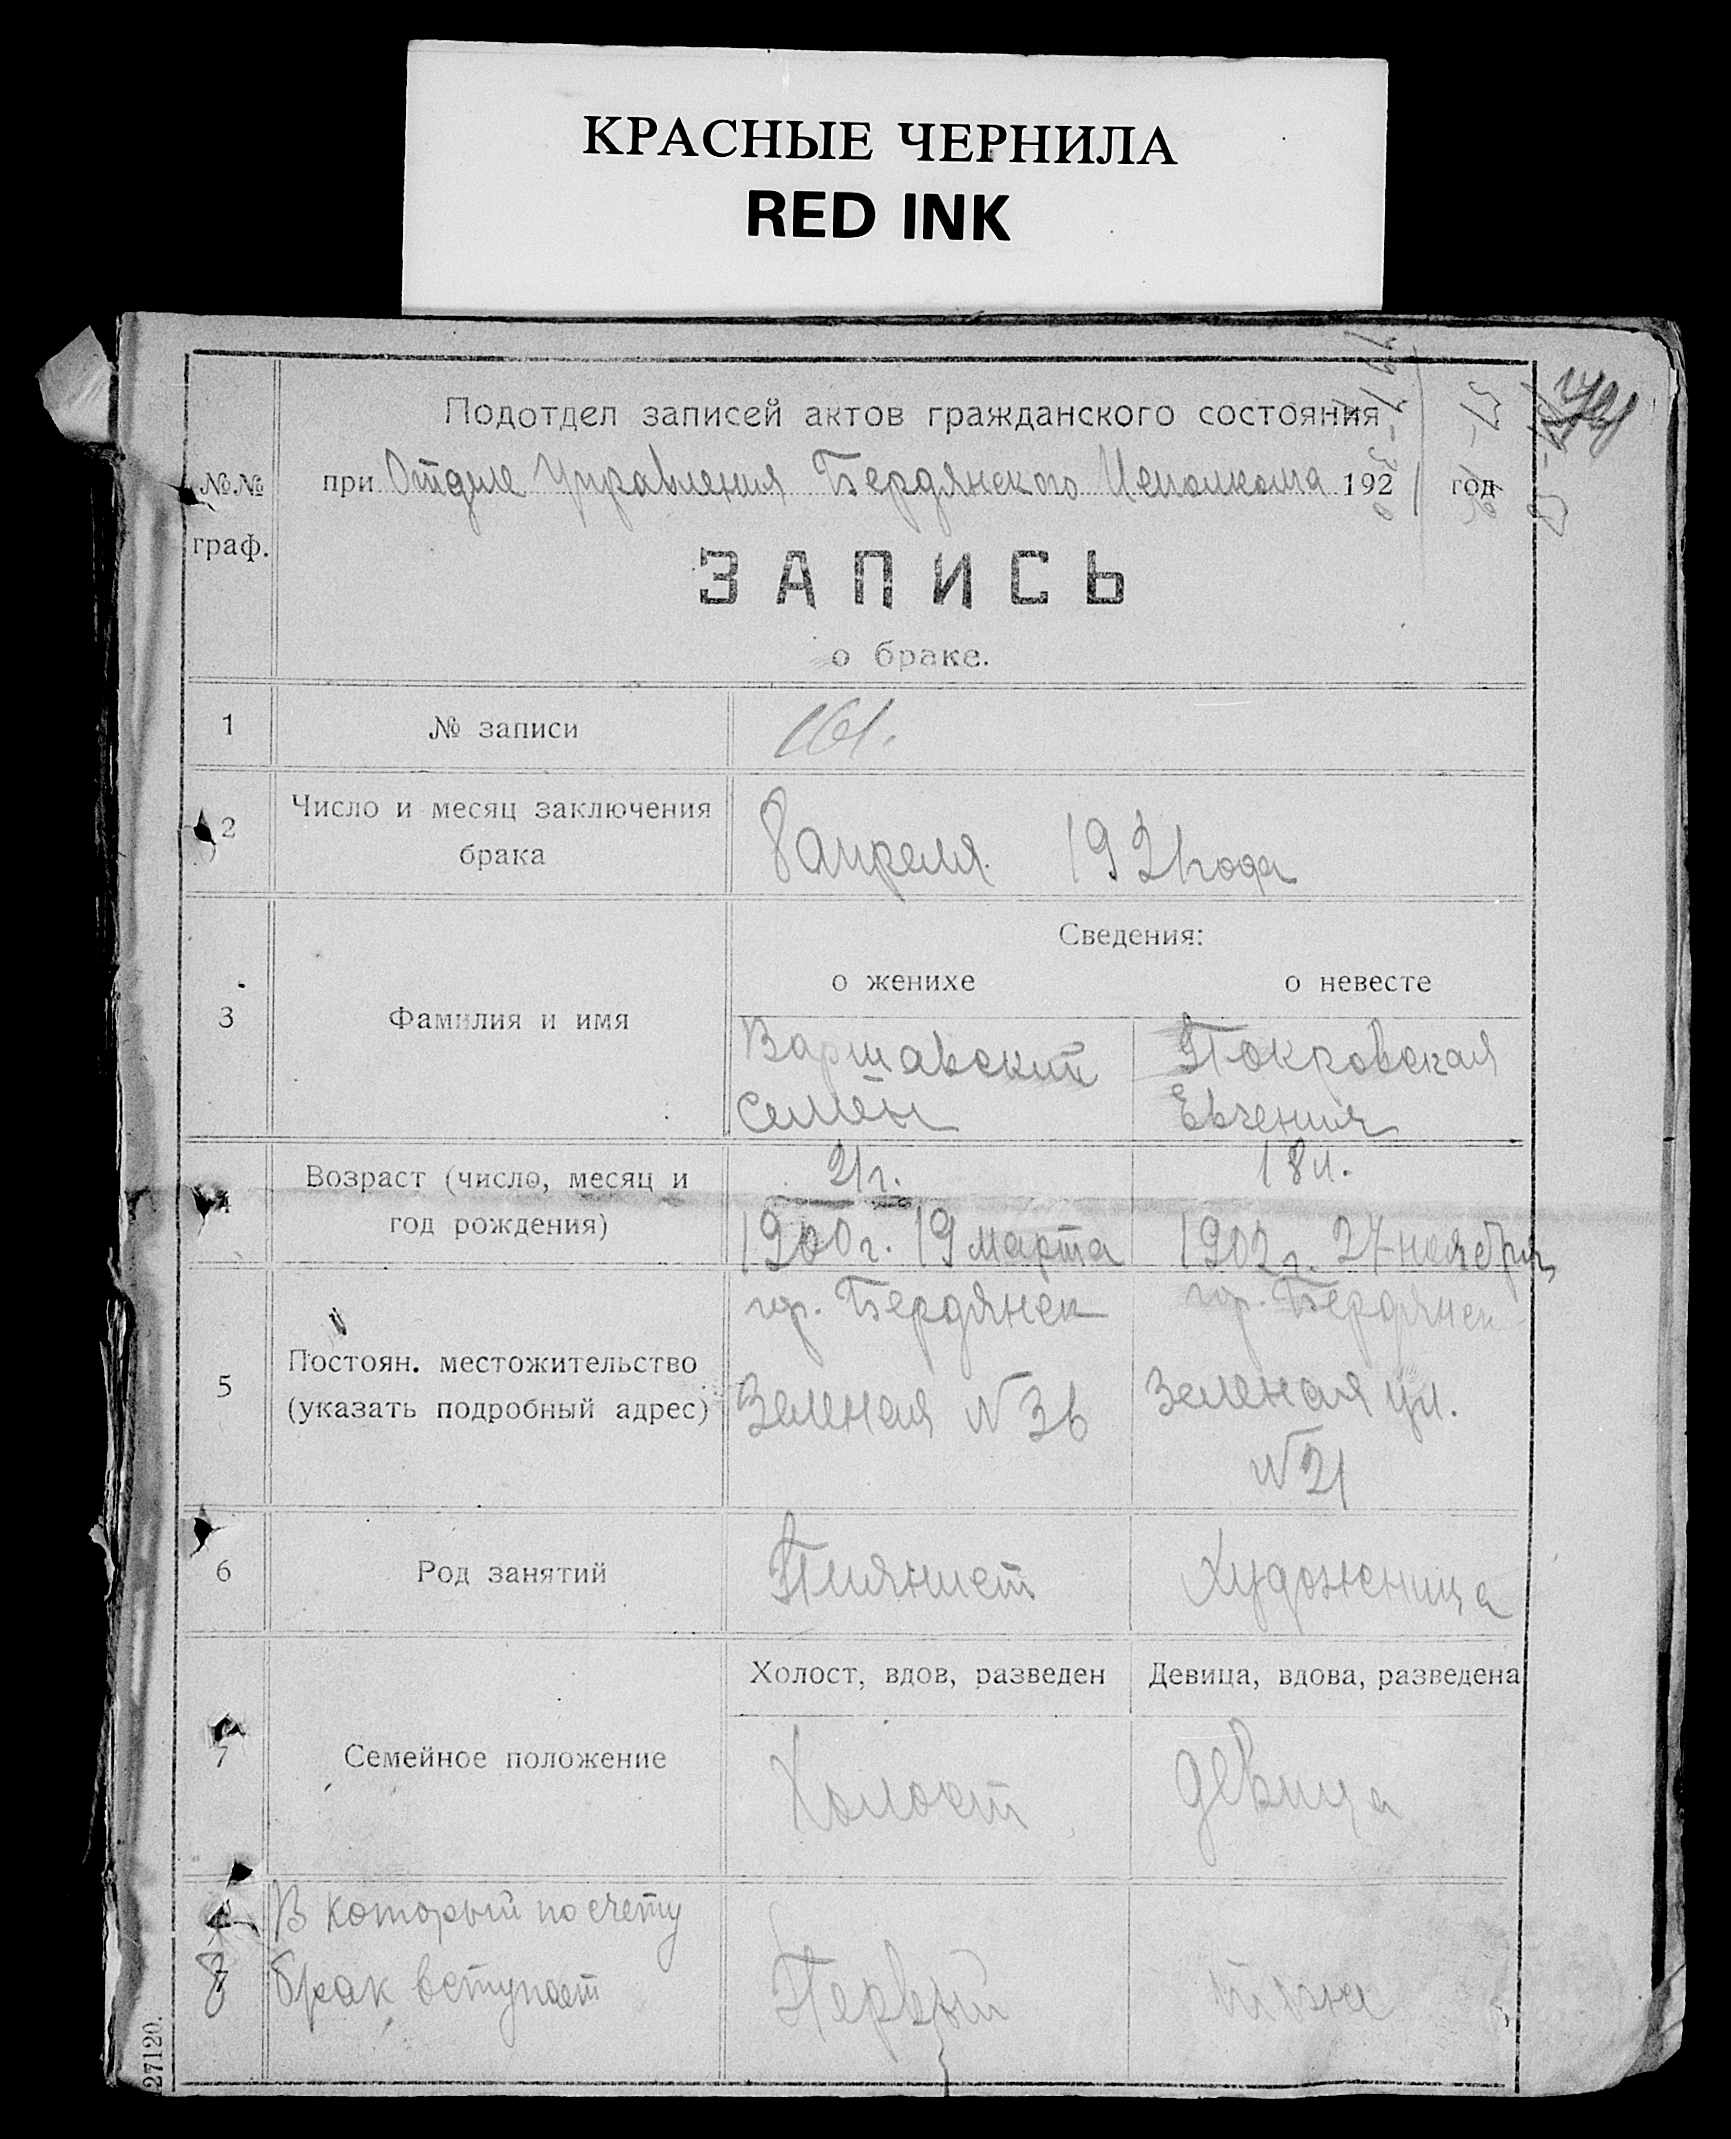 КРАСНЫЕ ЧЕРНИЛА
RED INK
Подотдел записей актов гражданского состояния
№№ граф.
при Отделе Управления Бердянского Исполкома 1921 год
ЗАПИСЬ
о браке.
1 № записи 161.
2 Число и месяц заключения брака
8 апреля 1921 года
Сведения:
о женихе о невесте
3 Фамилия и имя
Варшавский Покровская
Семён Евгения
4 Возраст (число, месяц и год рождения)
21 г. 18 л.
1900 г. 19 марта 1902 г. 27 ноября
5 Постоян. местожительство
(указать подробный адрес)
гор. Бердянск гор. Бердянск
Зеленая N 36 Зеленая ул.
N 21
6 Род занятий Пиянист Художница
Холост, вдов, разведен Девица, вдова, разведена
7 Семейное положение Холост девица
8 В который по счету
брак вступает Первый тоже
27120.